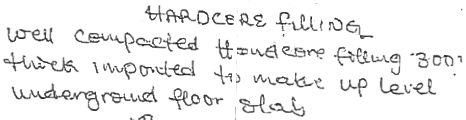 HARDCERE fILLING
well compacted Hardcore filling "300"
thick imported to make up level
underground floor slab